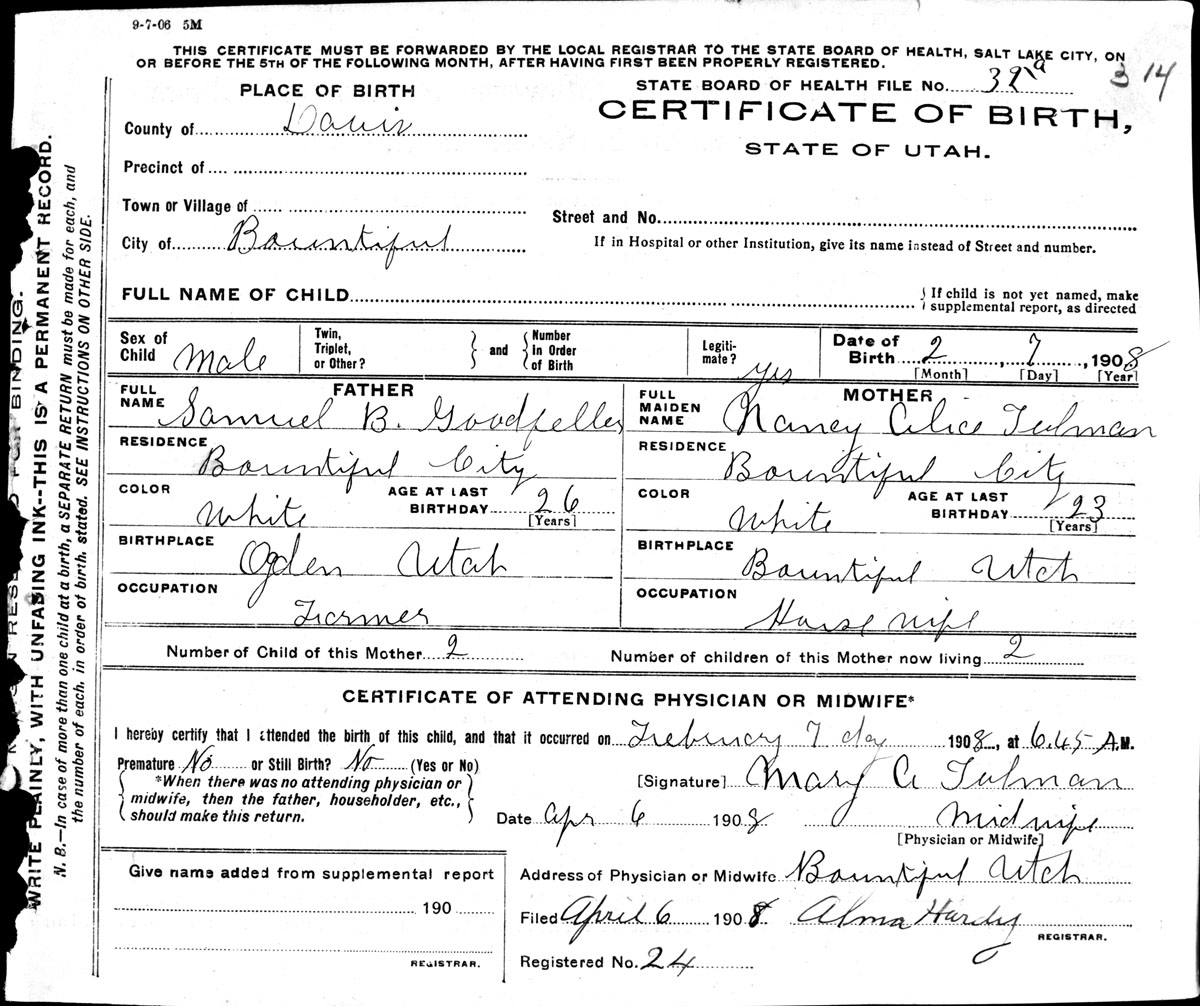 9-7-06 5M
THIS CERTIFICATE MUST BE FORWARDED BY THE LOCAL REGISTRAR TO THE STATE BOARD OF HEALTH, SALT LAKE CITY, ON
OR BEFORE THE 5TH OF THE FOLLOWING MONTH, AFTER HAVING FIRST BEEN PROPERLY REGISTERED.
314
PLACE OF BIRTH
STATE BOARD OF HEALTH FILE No. 32a
CERTIFICATE OF BIRTH,
STATE OF UTAH.
County of Davis
Precinct of
Town or Village of
Street and No.
City of Bountiful
If in Hospital or other Institution, give its name instead of Street and number.
FULL NAME OF CHILD
{ If child is not yet named, make
supplemental report, as directed
Sex of Child Male
Twin, Triplet, or Other?
} and {
Number in Order of Birth
Legiti-mate? yes
Date of Birth 2, 7, 1908
[Month] [Day] [Year]
FATHER
FULL NAME Samuel B. Goodfellow
RESIDENCE Bountiful City
COLOR White AGE AT LAST BIRTHDAY 26
[Years]
BIRTHPLACE Ogden Utah
OCCUPATION
Farmer
MOTHER
FULL MAIDEN NAME Nancy Alice Tulman
RESIDENCE Bountiful City
COLOR White AGE AT LAST BIRTHDAY 23
[Years]
BIRTHPLACE Bountiful Utah
OCCUPATION
House wife
Number of Child of this Mother 2 Number of children of this Mother now living 2
CERTIFICATE OF ATTENDING PHYSICIAN OR MIDWIFE*
I hereby certify that I attended the birth of this child, and that it occurred on Februery 7 day 1908, at 6.45 A.M.
Premature No or Still Birth? No (Yes or No)
*When there was no attending physician or
midwife, then the father, householder, etc.,
should make this return.
[Signature] Mary A Tulman
Date Apr 6 1908 Midwife
[Physician or Midwife]
Give name added from supplemental report
190
REGISTRAR.
Address of Physician or Midwife Bountiful Utah
Filed April 6 1908 Alma Hardy
REGISTRAR.
Registered No. 24
WRITE PLAINLY, WITH UNFADING INK--THIS IS A PERMANENT RECORD.
N. B.—In case of more than one child at a birth, a SEPARATE RETURN must be made for each, and
the number of each, in order of birth, stated. SEE INSTRUCTIONS ON OTHER SIDE.
FOR BINDING.